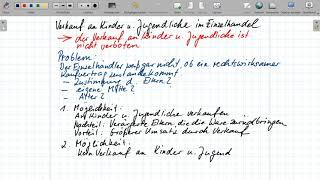 Verkauf an Kinder u. Jugendliche im Einzelhandel
→ der Verkauf an Kinder u. Jugendliche ist
nicht verboten
Problem:
Der Einzelhändler weiß gar nicht, ob ein rechtswirksamer
Kaufvertrag zustande kommt
- Zustimmung d. Eltern?
- eigene Mittel?
- Alter?
1. Möglichkeit:
An Kinder u. Jugendliche verkaufen
Nachteil: Verärgerte Eltern die die Ware zurückbringen
Vorteil: Größerer Umsatz durch Verkauf
2. Möglichkeit:
Kein Verkauf an Kinder u. Jugend